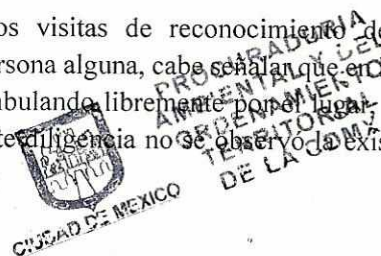 os visitas de reconocimiento de
ersona alguna, cabe señalar que en
mbulando libremente por el lugar
te diligencia no se observó la exis
PROCURADURIA
AMBIENTAL Y DEL
ORDENAMIENTO
TERRITORIAL
DE LA CDMX
CIUDAD DE MEXICO